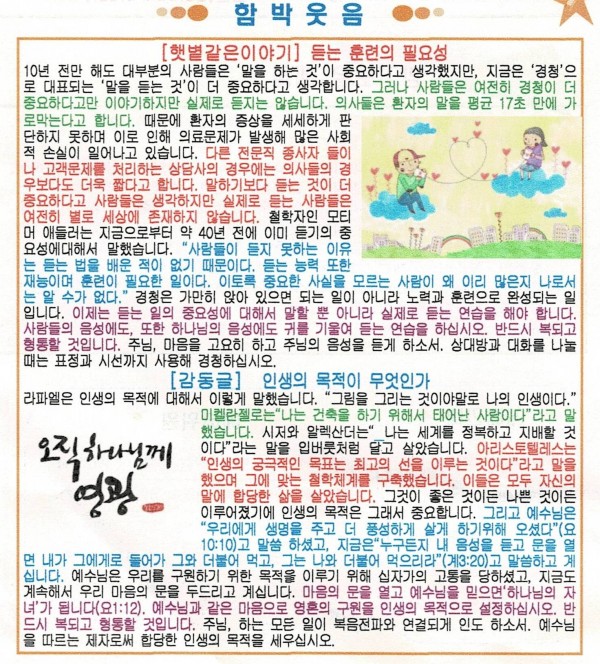 함박웃음
[햇볕같은이야기] 듣는 훈련의 필요성
10년 전만 해도 대부분의 사람들은 '말을 하는 것'이 중요하다고 생각했지만, 지금은 '경청'으
로 대표되는 '말을 듣는 것'이 더 중요하다고 생각합니다. 그러나 사람들은 여전히 경청이 더
중요하다고만 이야기하지만 실제로 듣지는 않습니다. 의사들은 환자의 말을 평균 17초 만에 가
로막는다고 합니다. 때문에 환자의 증상을 세세하게 판
단하지 못하며 이로 인해 의료문제가 발생해 많은 사회
적 손실이 일어나고 있습니다. 다른 전문직 종사자 들이
나 고객문제를 처리하는 상담사의 경우에는 의사들의 경
우보다도 더욱 짧다고 합니다. 말하기보다 듣는 것이 더
중요하다고 사람들은 생각하지만 실제로 듣는 사람들은
여전히 별로 세상에 존재하지 않습니다. 철학자인 모티
머 애들러는 지금으로부터 약 40년 전에 이미 듣기의 중
요성에대해서 말했습니다. "사람들이 듣지 못하는 이유
는 듣는 법을 배운 적이 없기 때문이다. 듣는 능력 또한
재능이며 훈련이 필요한 일이다. 이토록 중요한 사실을 모르는 사람이 왜 이리 많은지 나로서
는 알 수가 없다." 경청은 가만히 앉아 있으면 되는 일이 아니라 노력과 훈련으로 완성되는 일
입니다. 이제는 듣는 일의 중요성에 대해서 말할 뿐 아니라 실제로 듣는 연습을 해야 합니다.
사람들의 음성에도, 또한 하나님의 음성에도 귀를 기울여 듣는 연습을 하십시오. 반드시 복되고
형통할 것입니다. 주님, 마음을 고요히 하고 주님의 음성을 듣게 하소서. 상대방과 대화를 나눌
때는 표정과 시선까지 사용해 경청하십시오.
[감동글] 인생의 목적이 무엇인가
라파엘은 인생의 목적에 대해서 이렇게 말했습니다. "그림을 그리는 것이야말로 나의 인생이다."
미켈란젤로는"나는 건축을 하기 위해서 태어난 사람이다"라고 말
했습니다. 시저와 알렉산더는" 나는 세계를 정복하고 지배할 것
이다"라는 말을 입버릇처럼 달고 살았습니다. 아리스토텔레스는
"인생의 궁극적인 목표는 최고의 선을 이루는 것이다"라고 말을
했으며 그에 맞는 철학체계를 구축했습니다. 이들은 모두 자신의
말에 합당한 삶을 살았습니다. 그것이 좋은 것이든 나쁜 것이든
이루어졌기에 인생의 목적은 그래서 중요합니다. 그리고 예수님은
"우리에게 생명을 주고 더 풍성하게 살게 하기위해 오셨다"(요
10:10)고 말씀 하셨고, 지금은"누구든지 내 음성을 듣고 문을 열
면 내가 그에게로 들어가 그와 더불어 먹고, 그는 나와 더불어 먹으리라"(계3:20)고 말씀하고 계
십니다. 예수님은 우리를 구원하기 위한 목적을 이루기 위해 십자가의 고통을 당하셨고, 지금도
계속해서 우리 마음의 문을 두드리고 계십니다. 마음의 문을 열고 예수님을 믿으면'하나님의 자
녀'가 됩니다(요1:12). 예수님과 같은 마음으로 영혼의 구원을 인생의 목적으로 설정하십시오. 반
드시 복되고 형통할 것입니다. 주님, 하는 모든 일이 복음전파와 연결되게 인도 하소서. 예수님
을 따르는 제자로써 합당한 인생의 목적을 세우십시오.
오직하나님께
영광